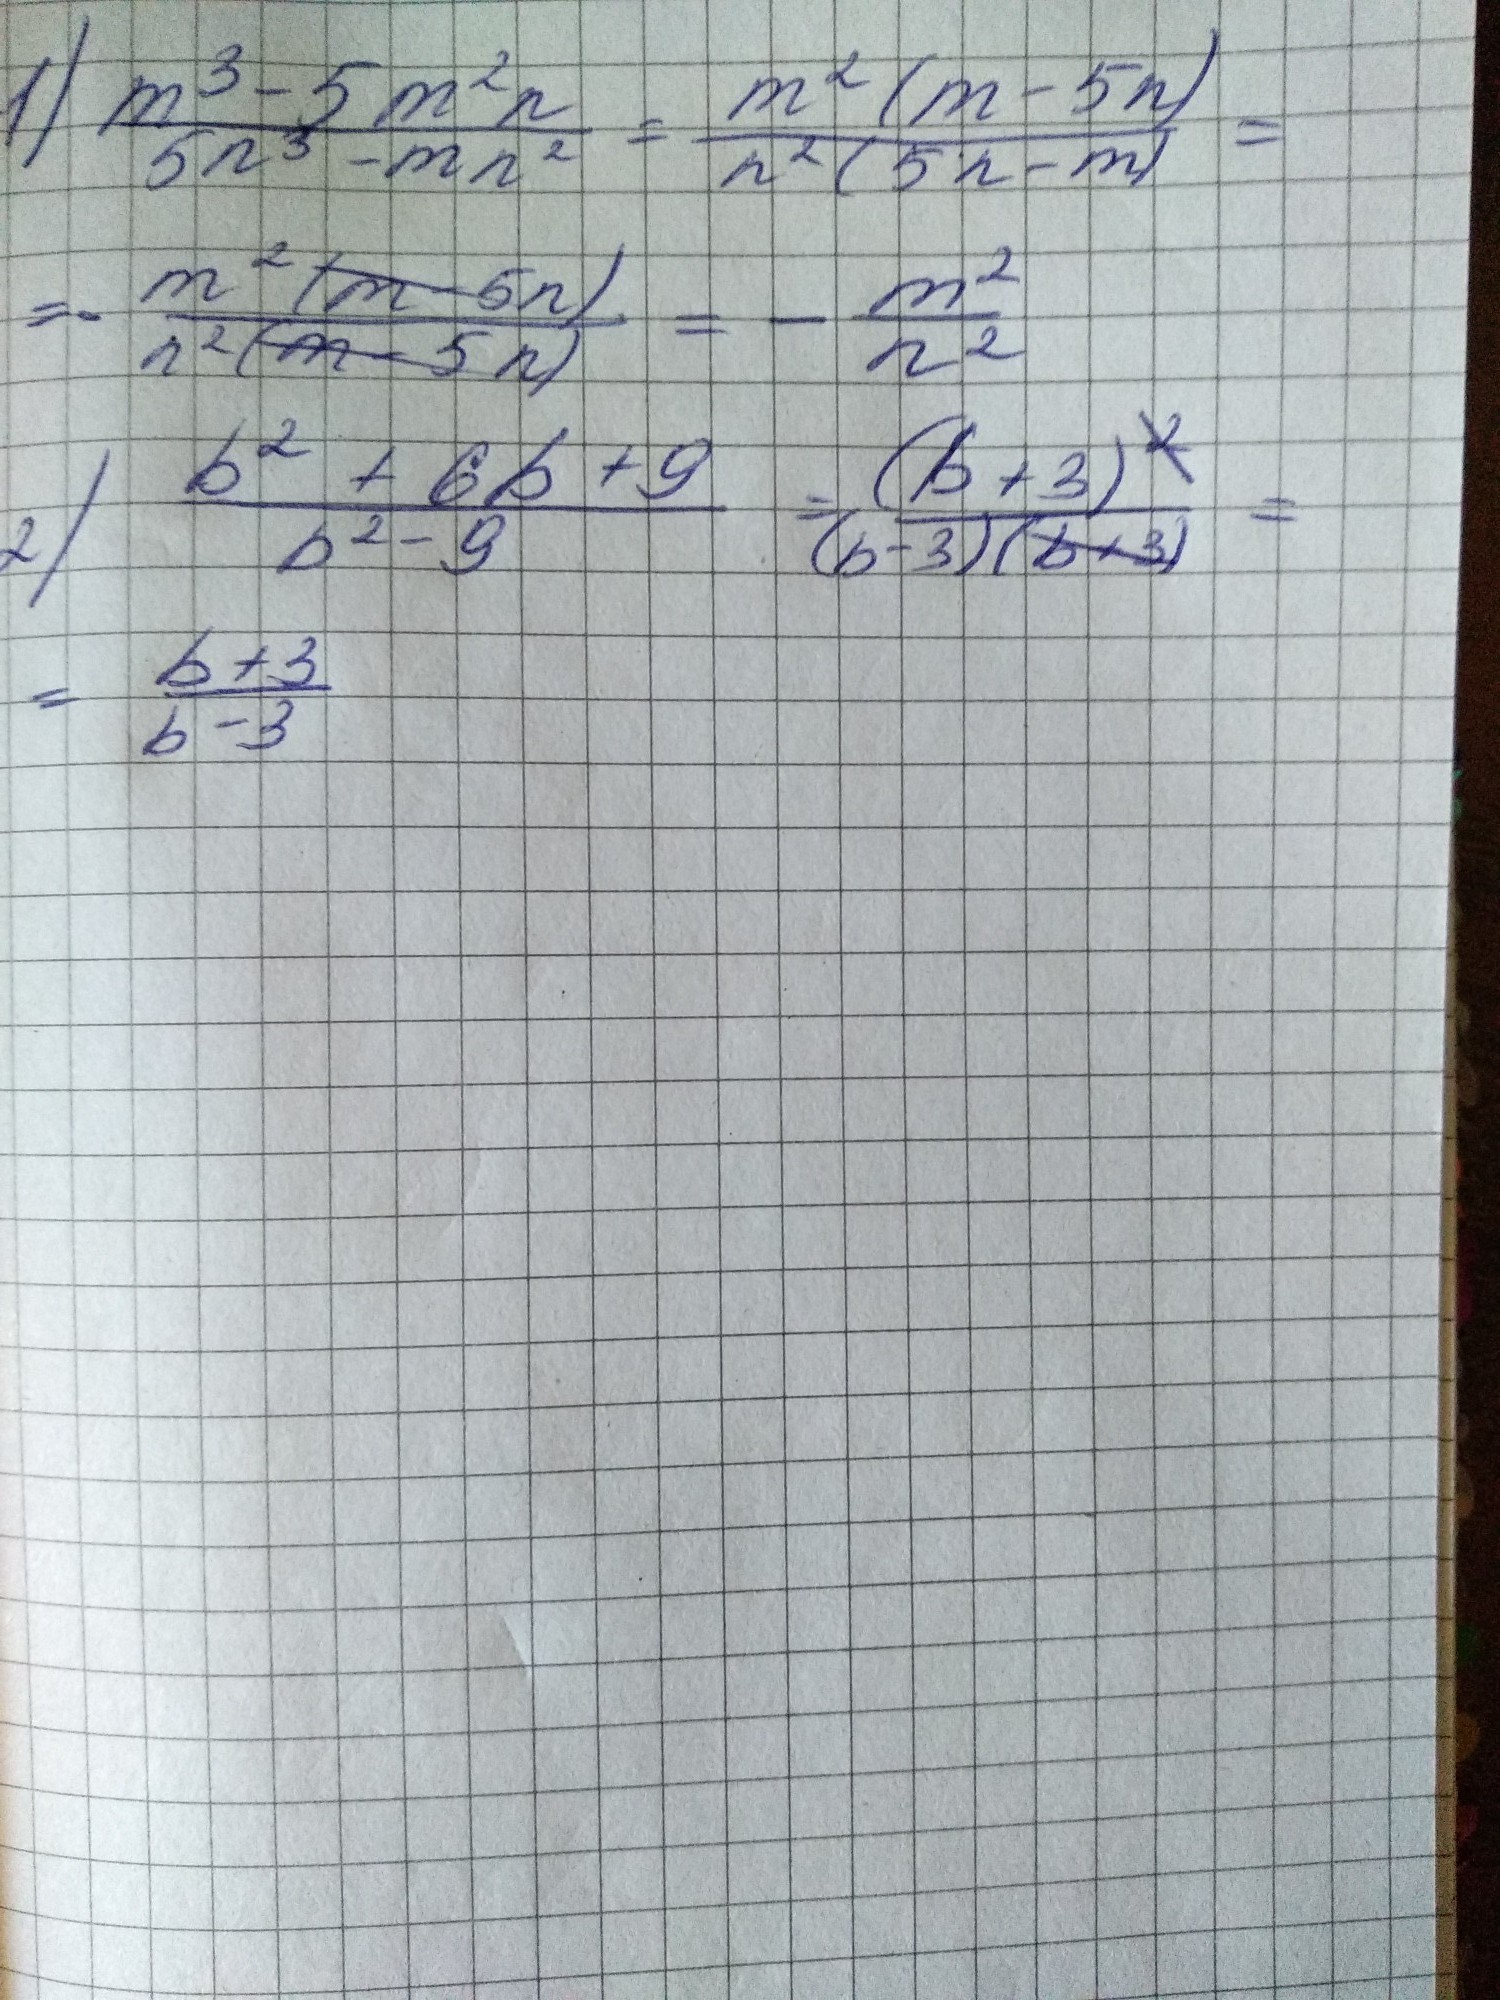 1) (m³ - 5m²n)/(5n³ - mn²) = (m²(m - 5n))/(n²(5n - m)) =
= - (m²(m - 5n))/(n²(m - 5n)) = - m²/n²
2) (b² + 6b + 9)/(b² - 9) = (b + 3)²/((b - 3)(b + 3)) =
= (b + 3)/(b - 3)